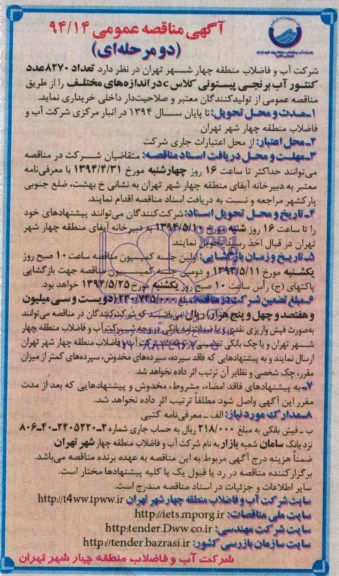 آگهی مناقصه عمومی ۹۴/۱۴
(دو مرحله‌ای)
شرکت آب و فاضلاب منطقه چهار شهر تهران در نظر دارد تعداد ۸۲۷۰عدد
کنتور آب برنجی پیستونی کلاس c در اندازه‌های مختلف را از طریق
مناقصه عمومی از تولیدکنندگان معتبر و صلاحیت‌دار داخلی خریداری نماید.
۱ـ مدت و محل تحویل: تا پایان سال ۱۳۹۴ در انبار مرکزی شرکت آب و
فاضلاب منطقه چهار شهر تهران
۲ـ محل اعتبار: از محل اعتبارات جاری شرکت
۳ـ مهلت و محل دریافت اسناد مناقصه: متقاضیان شرکت در مناقصه
می‌توانند حداکثر تا ساعت ۱۶ روز چهارشنبه مورخ ۱۳۹۴/۴/۳۱ با معرفی‌نامه
معتبر به دبیرخانه آبفای منطقه چهار شهر تهران به نشانی خ بهشت، ضلع جنوبی
پارکشهر مراجعه و نسبت به دریافت اسناد مناقصه اقدام نمایند.
۴ـ تاریخ و محل تحویل اسناد: شرکت‌کنندگان می‌توانند پیشنهادهای خود
را تا ساعت ۱۶ روز شنبه مورخ ۱۳۹۴/۵/۱۰ به دبیرخانه آبفای منطقه چهار شهر
تهران در قبال اخذ رسید تحویل نمایند.
۵ـ تاریخ و زمان بازگشایی: اولین جلسه کمیسیون مناقصه ساعت ۱۰ صبح روز
یکشنبه مورخ ۱۳۹۴/۵/۱۱ و دومین جلسه کمیسیون مناقصه جهت بازگشایی
پاکتهای (ج) رأس ساعت ۱۰ صبح روز یکشنبه مورخ ۱۳۹۴/۵/۲۵ خواهد بود.
۶ـ مبلغ تضمین شرکت در مناقصه: مبلغ ۲۳۰/۷۴۵/۰۰۰ (دویست و سی میلیون
و هفتصد و چهل و پنج هزار) ریال می‌باشد که شرکت‌کنندگان در مناقصه می‌توانند
به‌صورت فیش واریزی نقدی و یا ضمانتنامه بانکی در وجه شرکت آب و فاضلاب منطقه چهار
شهر تهران و یا چک بانکی تضمینی شرکت آب و فاضلاب منطقه چهار شهر تهران
ارسال نمایند و به پیشنهادهایی که فاقد سپرده، سپرده‌های مخدوش، سپرده‌های کمتر از میزان
مقرر، چک شخصی و نظایر آن ترتیب اثر داده نخواهد شد.
۷ـ به پیشنهادهای فاقد امضاء، مشروط، مخدوش و پیشنهادهایی که بعد از مدت
مقرر این آگهی واصل شود مطلقاً ترتیب اثر داده نخواهد شد.
۸ـ مدارک مورد نیاز: الف ـ معرفی‌نامه کتبی
ب ـ فیش بانکی به مبلغ ۲۱۸/۰۰۰ ریال به حساب جاری شماره ۲ـ۲۲۰۵۲۲۰ـ۴۰ـ۸۰۶
نزد بانک سامان شعبه بازار به نام شرکت آب و فاضلاب منطقه چهار شهر تهران
ضمناً هزینه درج آگهی مربوط به این مناقصه به عهده برنده مناقصه می‌باشد.
برگزارکننده مناقصه در رد یا قبول یک یا کلیه پیشنهادها مختار است.
سایر اطلاعات و جزئیات در اسناد مناقصه مندرج است.
سایت شرکت آب و فاضلاب منطقه چهار شهر تهران http://t4ww.tpww.ir
سایت ملی مناقصات: http://iets.mporg.ir
سایت شرکت مهندسی: http:tender.Dww.co.ir
سایت سازمان بازرسی کشور: http://tender.bazrasi.ir
شرکت آب و فاضلاب منطقه چهار شهر تهران